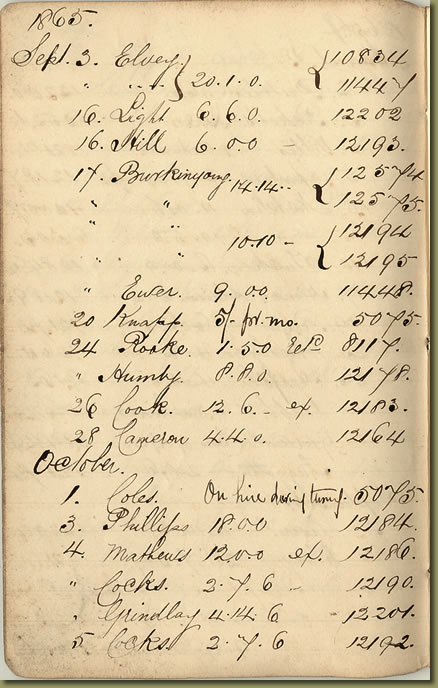 1865.
Sept. 3. Elvey } 10834
" " } 20.1.0. { 11447
16. Light 6.6.0. 12202
16. Hill 6.0.0 - 12193.
17. 14.14.. { 12574
" " 12575.
" " 10.10 - { 12194
" " 12195
" Ewer. 9.0.0. 11448.
20 Knapp. 5/- pr. mo. 5075.
24 Rooke. 1.5.0 8117.
" Humby. 8.8.0. 12178.
26 Cook. 12.6.- ex. 12183.
28 Cameron 4.4.0. 12164
October.
1. Coles. On hire during tuning. 5075.
3. Phillips 18.0.0 12184.
4. Mathews 12.0.0 ex. 12186.
" Cocks. 2.7.6 - 12190.
" Grindlay 4.14.6 - 12201.
5 Cocks. 2.7.6 12192.